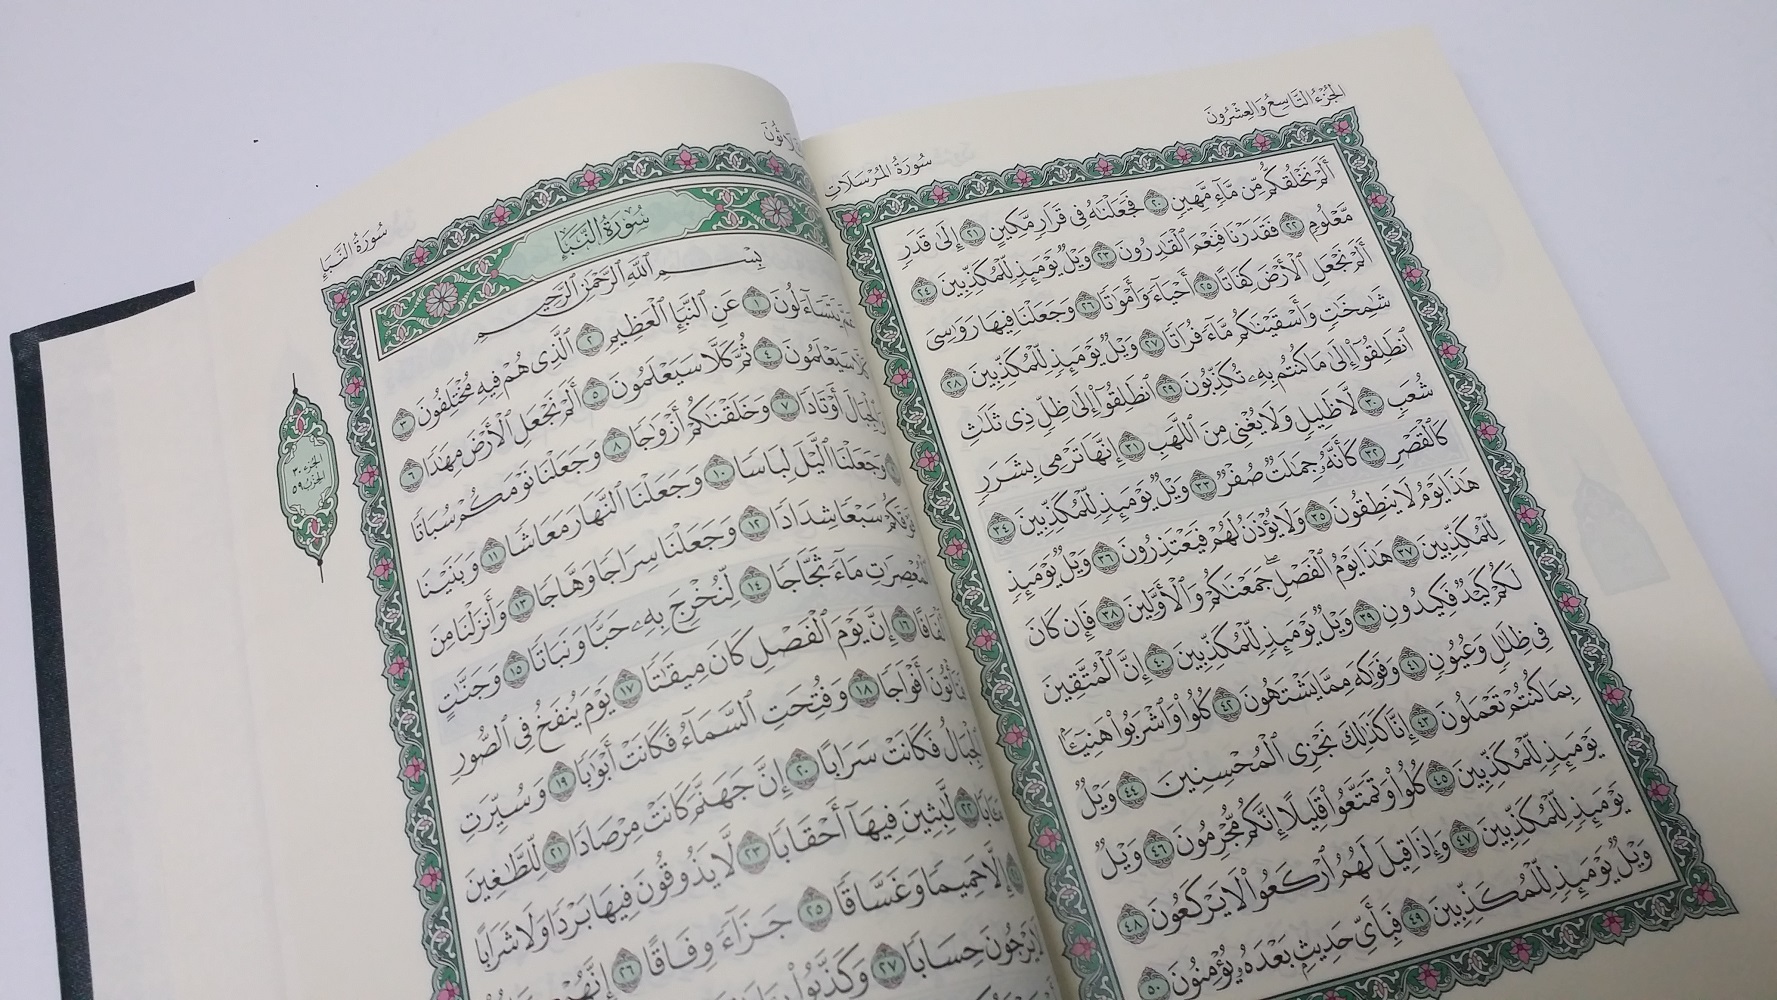 الجُزْءُ التَّاسِعُ وَالعِشْرُونَ
سُورَةُ المُرْسَلَات
أَلَمْ نَخْلُقكُّم مِّن مَّآءٍ مَّهِينٍ ٢٠ فَجَعَلْنَٰهُ فِى قَرَارٍ مَّكِينٍ ٢١ إِلَىٰ قَدَرٍ
مَّعْلُومٍ ٢٢ فَقَدَرْنَا فَنِعْمَ ٱلْقَٰدِرُونَ ٢٣ وَيْلٌ يَوْمَئِذٍ لِّلْمُكَذِّبِينَ ٢٤
أَلَمْ نَجْعَلِ ٱلْأَرْضَ كِفَاتًا ٢٥ أَحْيَآءً وَأَمْوَٰتًا ٢٦ وَجَعَلْنَا فِيهَا رَوَٰسِىَ
شَٰمِخَٰتٍ وَأَسْقَيْنَٰكُم مَّآءً فُرَاتًا ٢٧ وَيْلٌ يَوْمَئِذٍ لِّلْمُكَذِّبِينَ ٢٨
ٱنطَلِقُوٓا۟ إِلَىٰ مَا كُنتُم بِهِۦ تُكَذِّبُونَ ٢٩ ٱنطَلِقُوٓا۟ إِلَىٰ ظِلٍّ ذِى ثَلَٰثِ
شُعَبٍ ٣٠ لَّا ظَلِيلٍ وَلَا يُغْنِى مِنَ ٱللَّهَبِ ٣١ إِنَّهَا تَرْمِى بِشَرَرٍ
كَٱلْقَصْرِ ٣٢ كَأَنَّهُۥ جِمَٰلَتٌ صُفْرٌ ٣٣ وَيْلٌ يَوْمَئِذٍ لِّلْمُكَذِّبِينَ ٣٤
هَٰذَا يَوْمُ لَا يَنطِقُونَ ٣٥ وَلَا يُؤْذَنُ لَهُمْ فَيَعْتَذِرُونَ ٣٦ وَيْلٌ يَوْمَئِذٍ
لِّلْمُكَذِّبِينَ ٣٧ هَٰذَا يَوْمُ ٱلْفَصْلِ جَمَعْنَٰكُمْ وَٱلْأَوَّلِينَ ٣٨ فَإِن كَانَ
لَكُمْ كَيْدٌ فَكِيدُونِ ٣٩ وَيْلٌ يَوْمَئِذٍ لِّلْمُكَذِّبِينَ ٤٠ إِنَّ ٱلْمُتَّقِينَ
فِى ظِلَٰلٍ وَعُيُونٍ ٤١ وَفَوَٰكِهَ مِمَّا يَشْتَهُونَ ٤٢ كُلُوا۟ وَٱشْرَبُوا۟ هَنِيٓـًٔۢا
بِمَا كُنتُمْ تَعْمَلُونَ ٤٣ إِنَّا كَذَٰلِكَ نَجْزِى ٱلْمُحْسِنِينَ ٤٤ وَيْلٌ
يَوْمَئِذٍ لِّلْمُكَذِّبِينَ ٤٥ كُلُوا۟ وَتَمَتَّعُوا۟ قَلِيلًا إِنَّكُم مُّجْرِمُونَ ٤٦ وَيْلٌ
يَوْمَئِذٍ لِّلْمُكَذِّبِينَ ٤٧ وَإِذَا قِيلَ لَهُمُ ٱرْكَعُوا۟ لَا يَرْكَعُونَ ٤٨
وَيْلٌ يَوْمَئِذٍ لِّلْمُكَذِّبِينَ ٤٩ فَبِأَىِّ حَدِيثٍۭ بَعْدَهُۥ يُؤْمِنُونَ ٥٠
سُورَةُ النَّبَإِ
سُورَةُ النَّبَإِ
بِسْمِ ٱللَّهِ ٱلرَّحْمَٰنِ ٱلرَّحِيمِ
يَتَسَآءَلُونَ ١ عَنِ ٱلنَّبَإِ ٱلْعَظِيمِ ٢ ٱلَّذِى هُمْ فِيهِ مُخْتَلِفُونَ ٣
سَيَعْلَمُونَ ٤ ثُمَّ كَلَّا سَيَعْلَمُونَ ٥ أَلَمْ نَجْعَلِ ٱلْأَرْضَ مِهَٰدًا ٦
أَوْتَادًا ٧ وَخَلَقْنَٰكُمْ أَزْوَٰجًا ٨ وَجَعَلْنَا نَوْمَكُمْ سُبَاتًا
وَجَعَلْنَا ٱلَّيْلَ لِبَاسًا ١٠ وَجَعَلْنَا ٱلنَّهَارَ مَعَاشًا ١١ وَبَنَيْنَا
سَبْعًا شِدَادًا ١٢ وَجَعَلْنَا سِرَاجًا وَهَّاجًا ١٣ وَأَنزَلْنَا مِنَ
مَآءً ثَجَّاجًا ١٤ لِّنُخْرِجَ بِهِۦ حَبًّا وَنَبَاتًا ١٥ وَجَنَّٰتٍ
١٦ إِنَّ يَوْمَ ٱلْفَصْلِ كَانَ مِيقَٰتًا ١٧ يَوْمَ يُنفَخُ فِى ٱلصُّورِ
أَفْوَاجًا ١٨ وَفُتِحَتِ ٱلسَّمَآءُ فَكَانَتْ أَبْوَٰبًا ١٩ وَسُيِّرَتِ
فَكَانَتْ سَرَابًا ٢٠ إِنَّ جَهَنَّمَ كَانَتْ مِرْصَادًا ٢١ لِّلطَّٰغِينَ
٢٢ لَّٰبِثِينَ فِيهَآ أَحْقَابًا ٢٣ لَّا يَذُوقُونَ فِيهَا بَرْدًا وَلَا شَرَابًا
إِلَّا حَمِيمًا وَغَسَّاقًا ٢٥ جَزَآءً وِفَاقًا ٢٦ إِنَّهُمْ
يَرْجُونَ حِسَابًا ٢٧ وَكَذَّبُوا۟
الجزء ٣٠
الحزب ٥٩